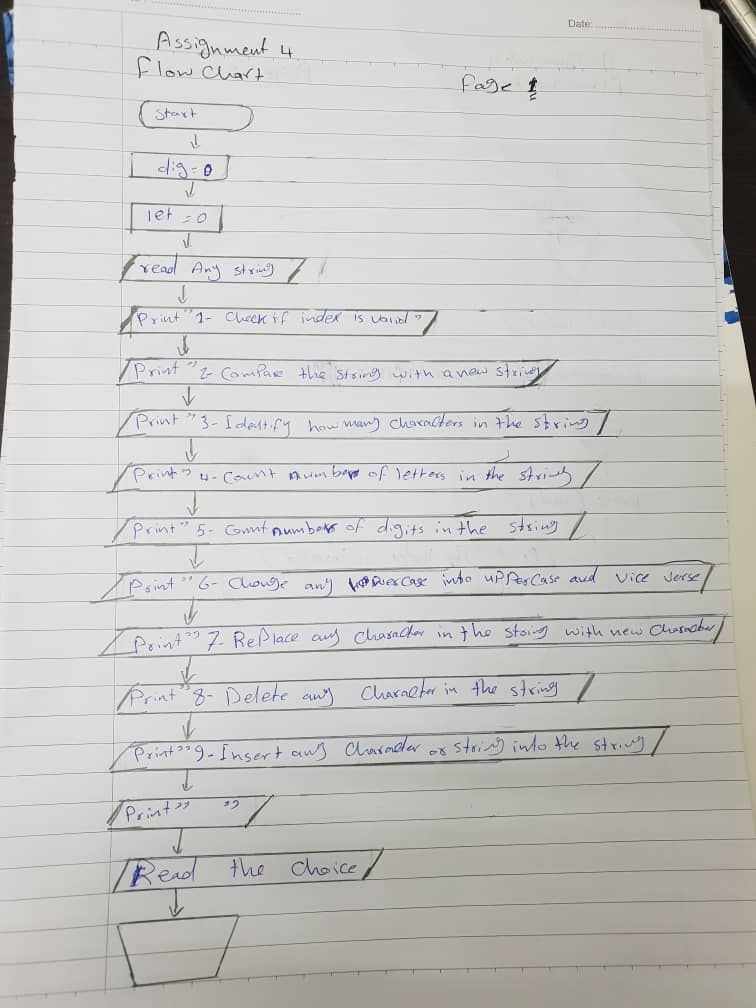 Date:
Assignment 4
Flow Chart
Page 1
Start
dig = 0
let = 0
read Any string
Print "1- Check if index is valid"
Print "2- Compare the string with a new string
Print "3- Identify how many characters in the string
Print " 4- Count number of letters in the string
Print " 5- Count numbers of digits in the string
Print " 6- Change any lowercase into upper case and vice verse
Print "" 7- Replace any character in the string with new character
Print "8- Delete any Character in the string
Print "" 9- Insert any Character or string into the string
Print " "
Read the Choice